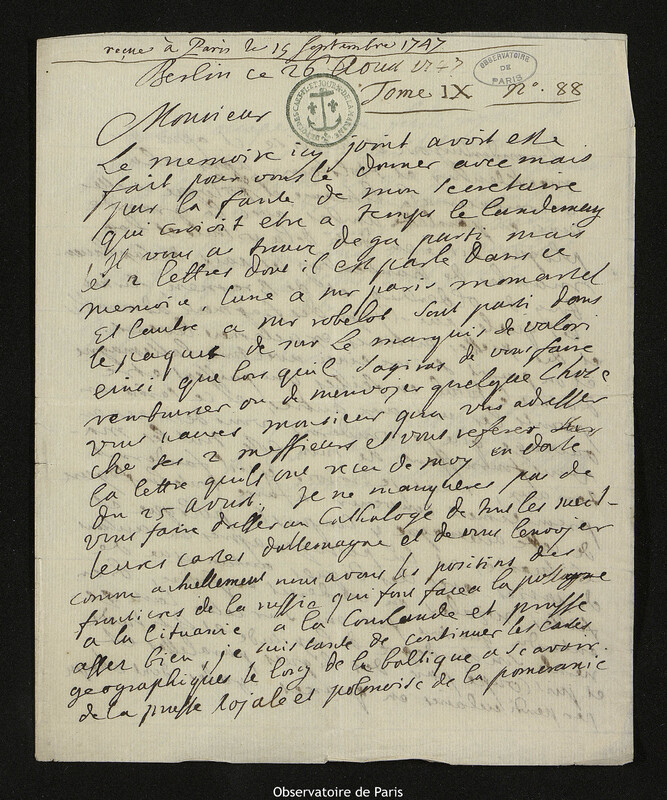 reçue à Paris le 19 Septembre 1747
Berlin ce 26 Aout 1747
OBSERVATOIRE
DE
PARIS
Tome IX n°. 88
Monsieur
Le memoire icy joint avoit este
fait pour vous le donner avec mais
par la faute de mon secretaire
qui croioit etre a temps le landemay
il vous a trouvé dega parti mais
les 2 lettres dont il est parlé dans ce
memoire, lune a mr paris momartel
Et lautre a mr robelot sont parti dans
le paquet de mr Le marquis de valori
einsi que lors quil sagiras de vous faire
rembourser ou de menvoyer quelque chose
vous naures monsieur qua vous adresser
ché ses 2 messieurs et vous referer sur
la lettre quils ont receu de moy en date
du 25 aoust. Je ne manqueres pas de
vous faire dresser un Cathaloge de tous les meil-
leures cartes dallemagne et de vous lenvoyer
comme actuellement nous avons les positions des
frontieres de la russie qui font face a la pologne
a la lituanie a la Courlande et prusse
assez bien, je suis tanté de continuer les cartes
geographiques le long de la baltique a scavoir
de la prusse royale et polonoise de la pomeranie
Observatoire de Paris